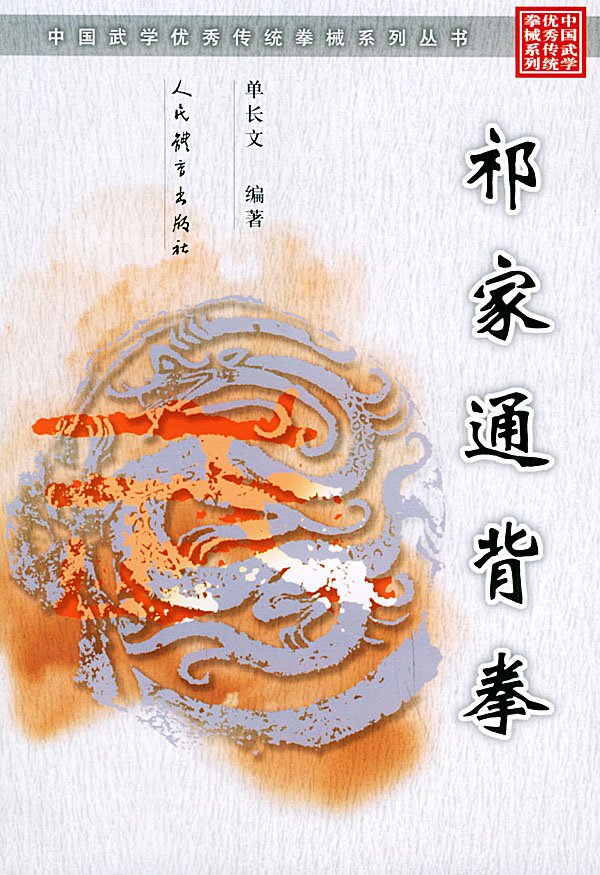 中国武学优秀传统拳械系列丛书
中国武学
优秀传统
拳械系列
祁家通背拳
单长文 编著
人民体育出版社